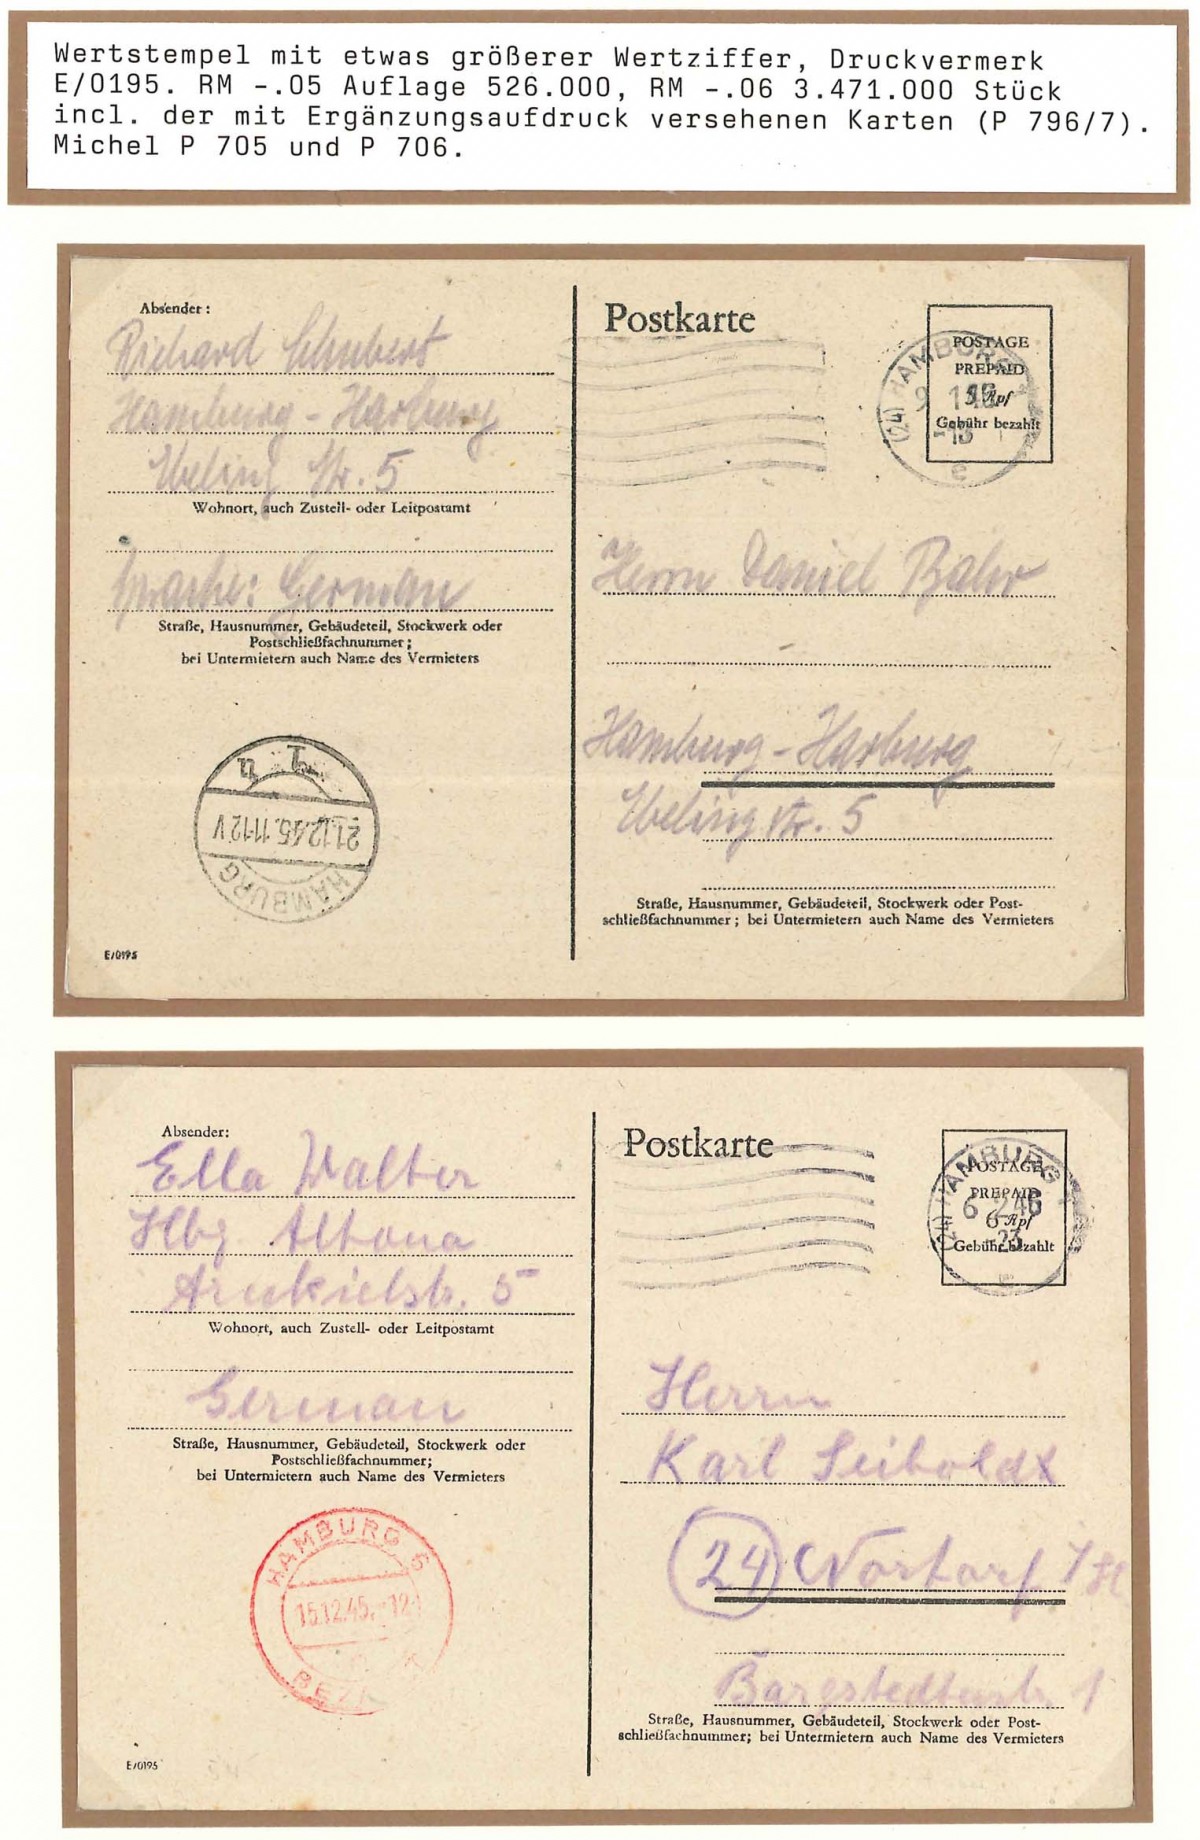 Wertstempel mit etwas größerer Wertziffer, Druckvermerk
E/0195. RM -.05 Auflage 526.000, RM -.06 3.471.000 Stück
incl. der mit Ergänzungsaufdruck versehenen Karten (P 796/7).
Michel P 705 und P 706.
Absender:
Richard Schubert
Hamburg-Harburg
Ebeling Str. 5
Wohnort, auch Zustell- oder Leitpostamt
Sprache: German
Straße, Hausnummer, Gebäudeteil, Stockwerk oder
Postschließfachnummer;
bei Untermietern auch Name des Vermieters
HAMBURG
21.12.45.11-12 V
1 n
E/0195
Postkarte
POSTAGE
PREPAID
5 Rpf
Gebühr bezahlt
(24) HAMBURG
9.1.46
-13
e
Herrn Daniel Bahr
Hamburg-Harburg
Ebeling Str. 5
Straße, Hausnummer, Gebäudeteil, Stockwerk oder Post-
schließfachnummer; bei Untermietern auch Name des Vermieters
Absender:
Ella Walter
Hbg Altona
Arnkielstr. 5
Wohnort, auch Zustell- oder Leitpostamt
German
Straße, Hausnummer, Gebäudeteil, Stockwerk oder
Postschließfachnummer;
bei Untermietern auch Name des Vermieters
HAMBURG 5
15.12.45.-12
E/0195
Postkarte
POSTAGE
PREPAID
6 Rpf
Gebühr bezahlt
(24) HAMBURG 1
6 2.46
23
Herrn
Karl Seiboldt
24 Nortorf / Hl
Bargstedterstr. 1
Straße, Hausnummer, Gebäudeteil, Stockwerk oder Post-
schließfachnummer; bei Untermietern auch Name des Vermieters